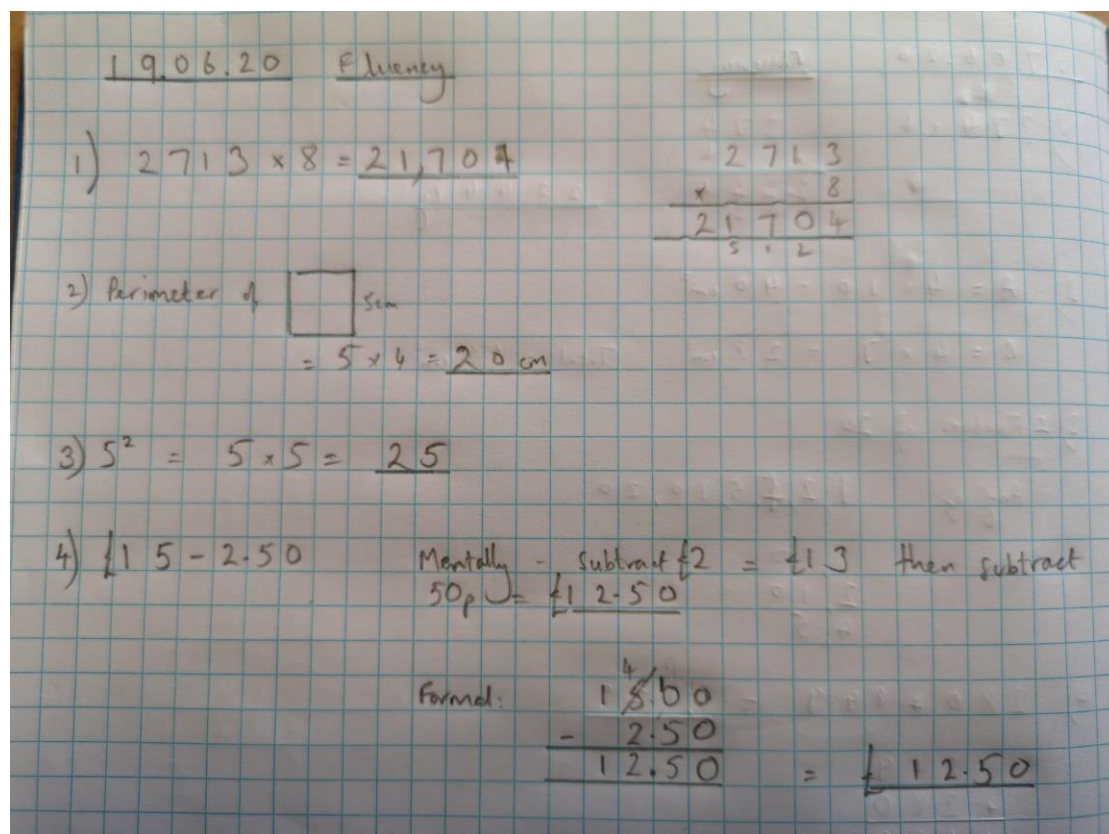 19.06.20 Fluency
1) 2713 × 8 = 21,704
2713
× 8
21704
5 1 2
2) Perimeter of 5cm
= 5 × 4 = 20 cm
3) 5² = 5 × 5 = 25
4) £15 - 2.50
Mentally - subtract £2 = £13 then subtract
50p = £12.50
Formal:
4
15.00
- 2.50
12.50 = £12.50